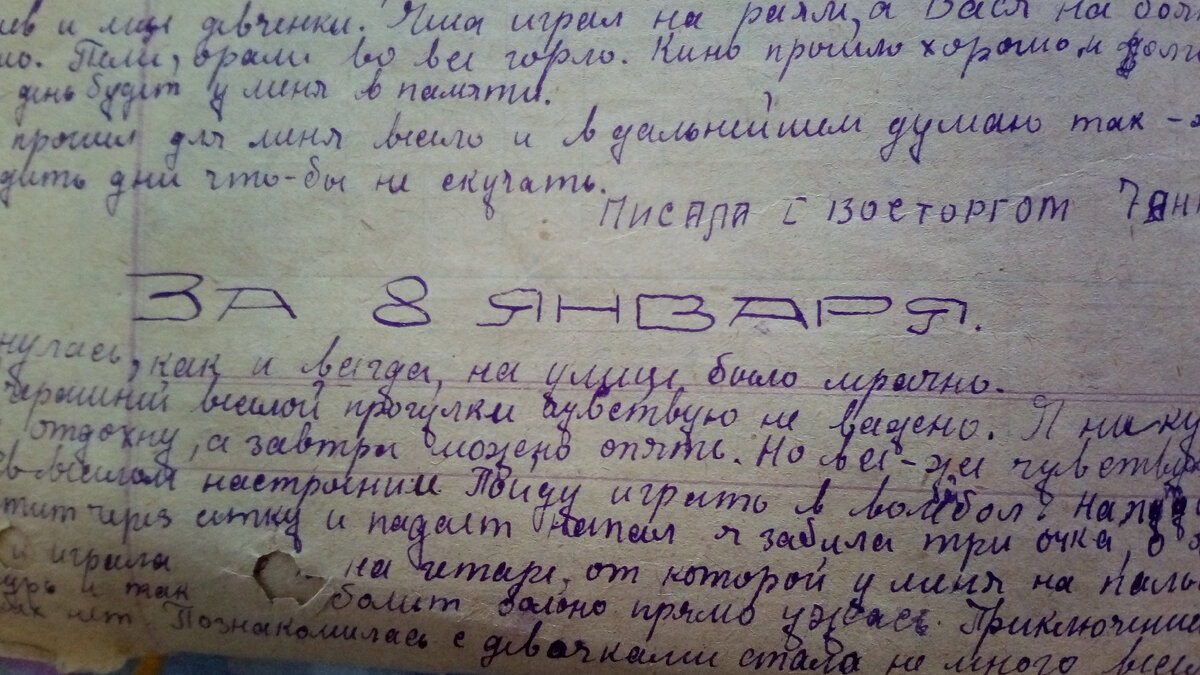 и лица девченки. Яша играл на раям, а Вася на
Пели, орали во все горло. Кино прошло хорошо и
день будет у меня в памяти.
прошил для меня весело и в дальнейшем думаю так -
дить дни что-бы не скучать.
Писала с восторгом 7 янв
ЗА 8 ЯНВАРЯ.
нулась, как и всегда, на улице было мрачно.
черашней веселой прогулки чувствую не важено. Я ни ку
отдохну, а завтра можено опять. Но все-же чувству
в веселом настроении Пойду играть в волейбол.
тит через сетку и падает напал я забила три очка,
и играла на гетаре, от которой у меня на паль
и так болит больно прямо ужась. Приключение
нет. Познакомилась с девочками стала не много весел